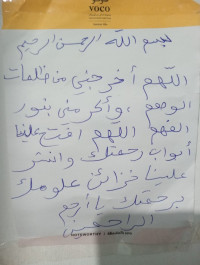 ڤوكو
VOCO
بسم الله الرحمن الرحيم
اللهم أخرجني من ظلمات
الوهم، وأكرمني بنور
الفهم اللهم افتح علينا
أبواب رحمتك وانشر
علينا خزائن علومك
برحمتك يا أرحم
الراحمين